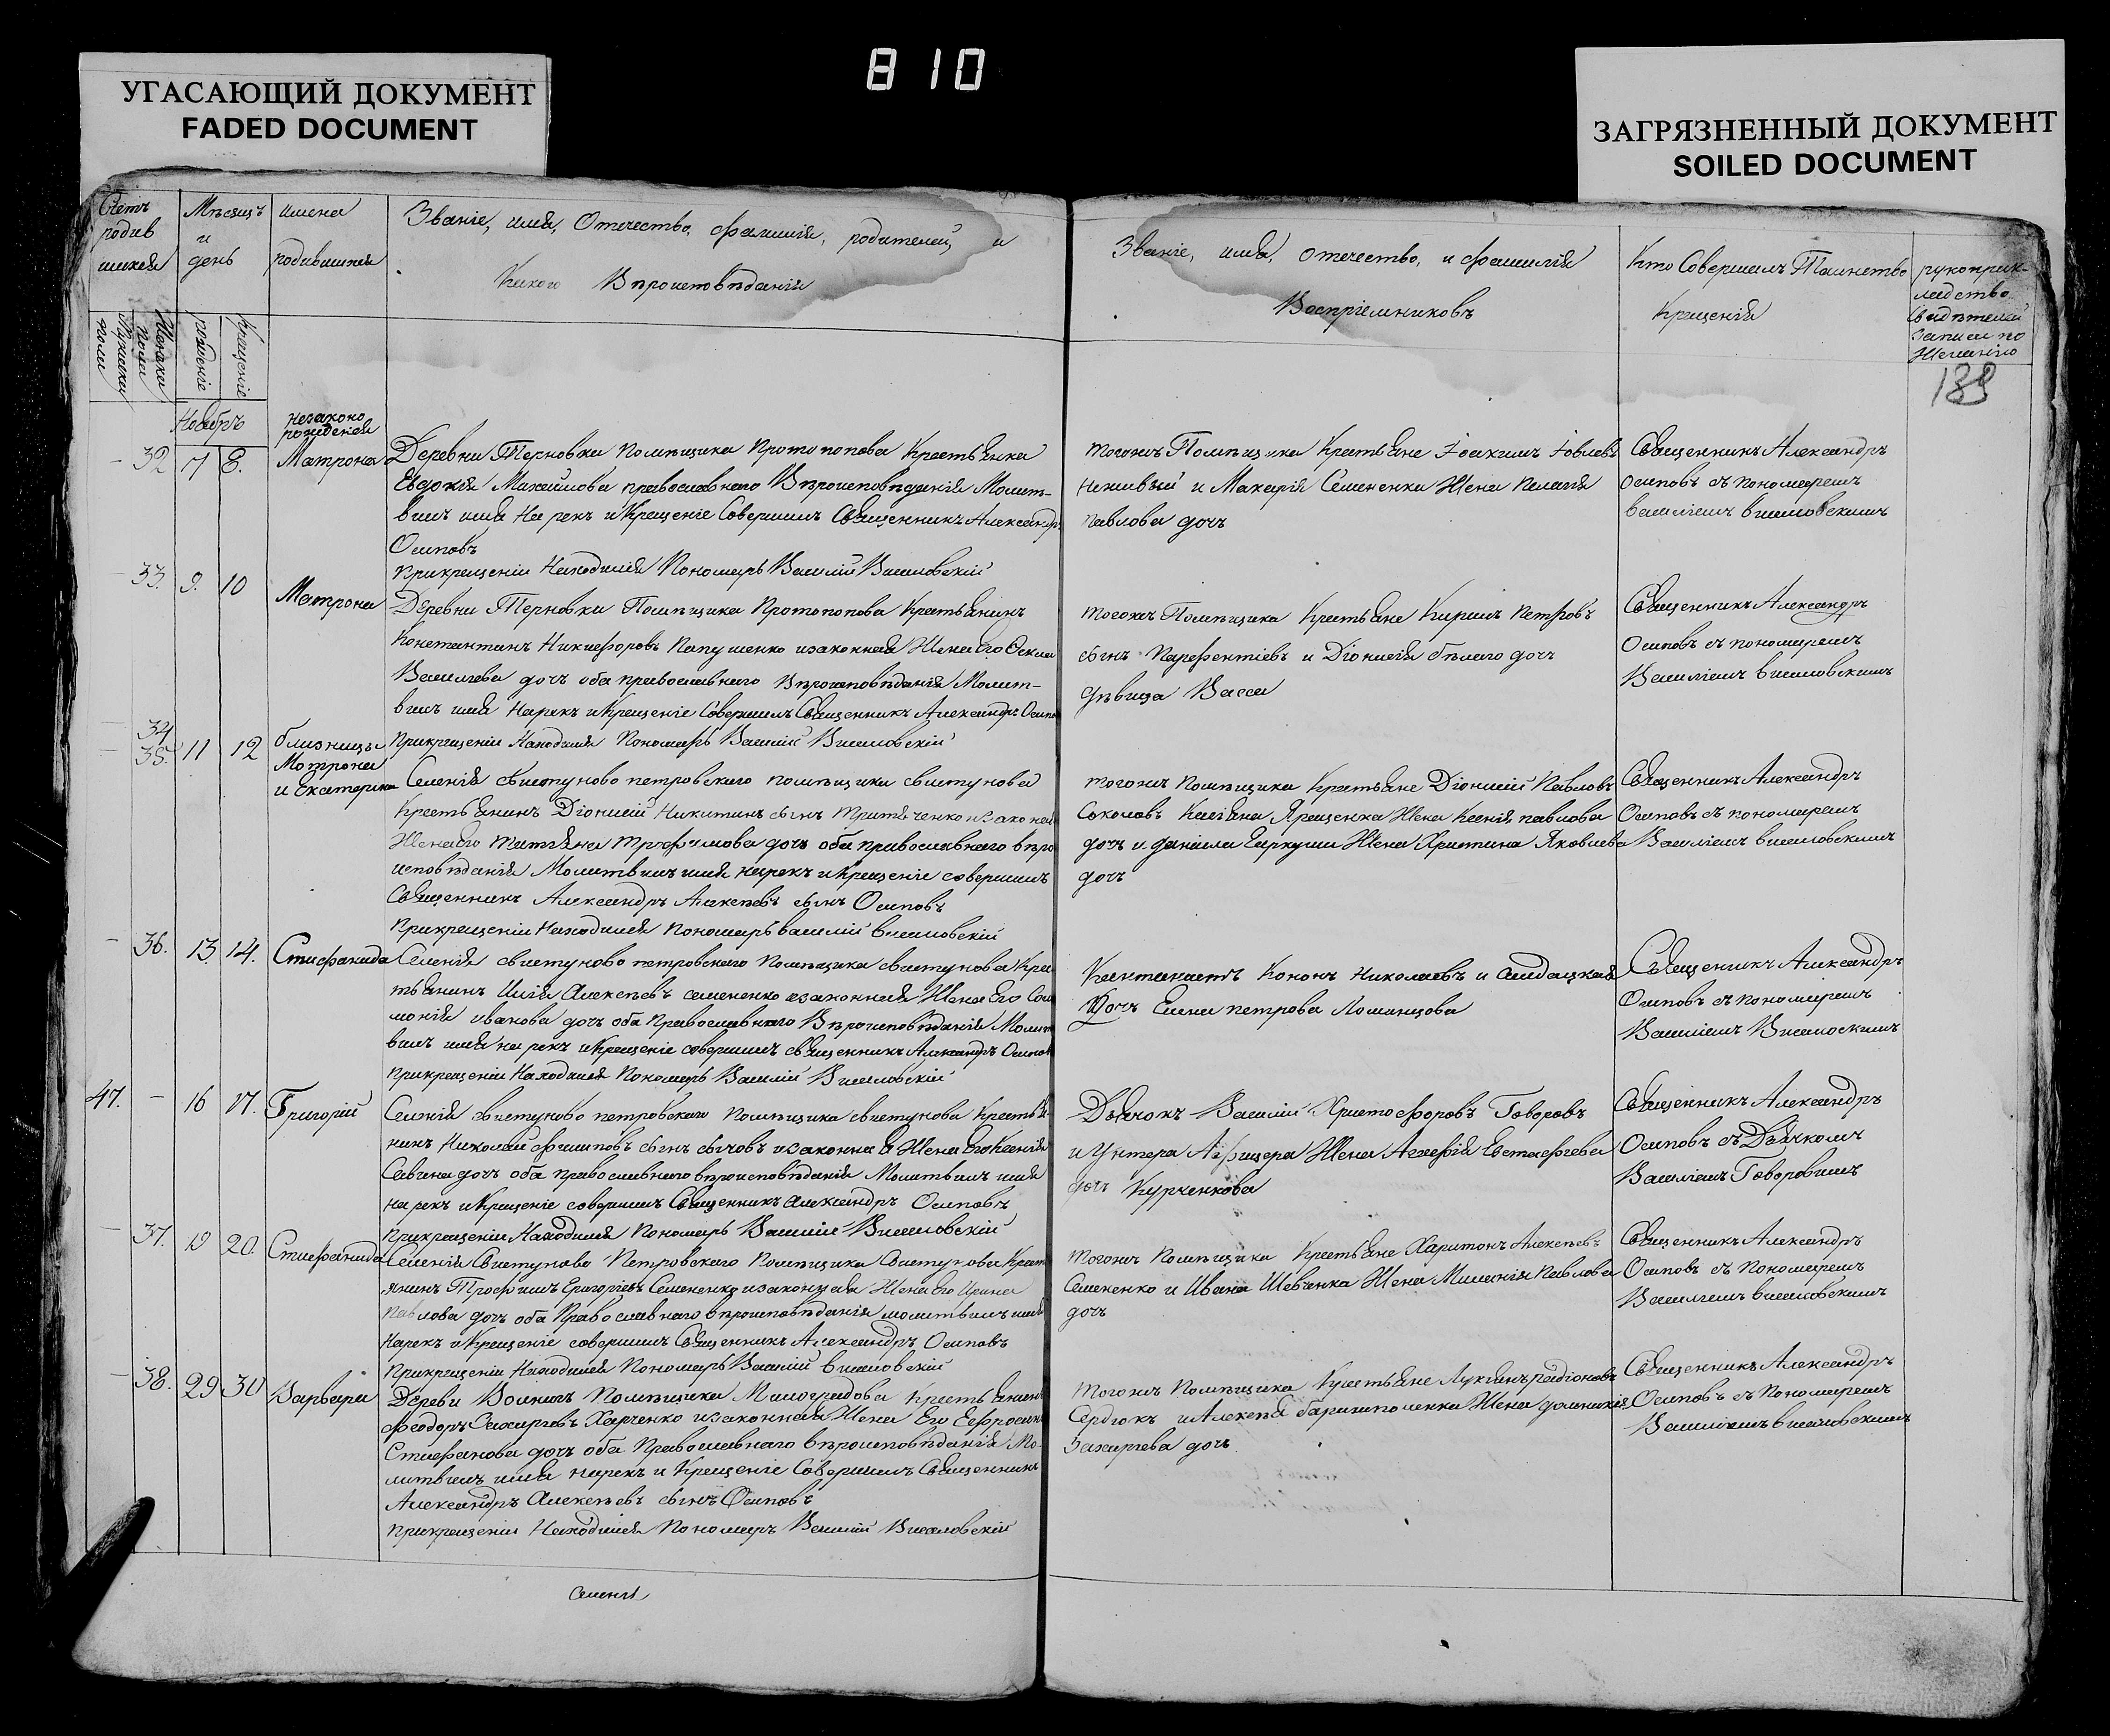 810
УГАСАЮЩИЙ ДОКУМЕНТ
FADED DOCUMENT
ЗАГРЯЗНЕННЫЙ ДОКУМЕНТ
SOILED DOCUMENT
Счетъ родив шихся
Мѣсяцъ и день
имена родившихся
Званіе, имя, Отечество, фамилія, родителей, и
Какого Вѣроисповѣданія
Званіе, имя, отечество, и фамилія
Воспріемниковъ
Кто Совершалъ Таинство
Крещенія
рукоприк-
ладство
свидѣтелей
записи по
Желанію
Мужска пола
Женска пола
рожденіе
крещеніе
189
Ноябръ
незаконо
рожденая
32 7 8. Матрона
Деревни Терновки помѣщика Протопопова Крестьянка
Евдокія Михайлова православнаго Вѣроисповѣданія Молит-
вилъ имя На рекъ и Крещеніе Совершилъ Священникъ Александръ
Осиповъ
при крещеніи Находился Пономарь Василій Висиловскій
тогожъ Помѣщика Крестьяне Іоакимъ Іовлевъ
неживый и Макарія Семененка Жена Пелагія
павлова дочь
Священникъ Александръ
Осиповъ съ пономаремъ
василіемъ висиловскимъ
33. 9. 10 Матрона
Деревни Терновки Помѣщика Протопопова Крестьянинъ
Константинъ Никифоровъ Папушенко изаконная Жена Его Фекла
Василіева дочь оба православнаго Вѣроисповѣданія Молит-
вилъ имя Нарекъ и Крещеніе Совершилъ Священникъ Александръ Осипо
прикрещеніи Находился Пономарь Василій Висиловскій
тогожъ Помѣщика Крестьяне Кирилъ Петровъ
сынъ Парфентіевъ и Діонисія бѣлаго дочь
дѣвица Васса
Священникъ Александръ
Осиповъ съ пономаремъ
Василіемъ висиловскимъ
34
35. 11 12 близнецы
Мотрона
и Екатерина
Селенія свистуново петровскаго помѣщика свистунова
Крестьянинъ Діонисій Никитинъ сынъ Тритяченко изаконая
Жена его татіяна трофимова дочь оба православнаго вѣро
исповѣданія Молитвилъ имя нарекъ и Крещеніе совершилъ
Священникъ Александръ Алексѣевъ сынъ Осиповъ
прикрещеніи Находился пономарь василій висиловскій
тогожъ помѣщика Крестьяне Діонисій Павловъ
Соколовъ Касіяна Ярещенка Жена Ксенія павлова
дочь и даніила Гаркуши Жена Христина Яковлева
дочь
Священникъ Александръ
Осиповъ съ пономаремъ
Василіемъ висиловскимъ
36. 13. 14. Стефанида
Селенія свистуново петровскаго Помѣщика свистунова Кре
тьянинъ Илія Алексѣевъ семененко изаконная Жена Его Соло
монія иванова дочь оба Православнаго Вѣроисповѣданія Молит
вилъ имя на рекъ и Крещеніе совершилъ священникъ Александръ Осипов
прикрещеніи Находился Пономарь Василій Висиловскій
Кононъ Николаевъ и салдацкая
Дочь Елена петрова Ломанцова
Священикъ Александръ
Осиповъ съ пономаремъ
Василіемъ Висилоскимъ
47. 16 17. Григорій
Селенія свистуново петровскаго Помѣщика свистунова Крестья
нинъ Николай филиповъ сынъ сычовъ изаконная Жена Его Ксенія
Савина дочь оба православнаго вѣроисповѣданія Молитвилъ имя
на рекъ и Крещеніе совершилъ Священникъ александръ Осиповъ
прикрещеніи Находился Пономарь Василій Висиловскій
Дьячокъ Василій Христофоровъ Говоровъ
и Унтера Афицера Жена Агафія Евстафіева
дочь Курченкова
Священникъ Александръ
Осиповъ съ Дьячкомъ
Василіемъ Говоровымъ
37. 19 20. Стефанида
Селенія Свистуново Петровскаго Помѣщика Свистунова Крест
янинъ Трофимъ Григоріевъ Семененко изаконная Жена Его Ирина
Павлова дочь оба Православнаго вѣроисповѣданія молитвилъ имя
нарекъ и Крещеніе совершилъ Священникъ Александръ Осиповъ
прикрещеніи Находился Пономарь Василій висиловскій
тогожъ Помѣщика Крестьяне Харитонъ Алексѣевъ
Семененко и Ивана Шевченка Жена Меланія Павлова
дочь
Священникъ Александръ
Осиповъ съ Пономаремъ
Василіемъ висиловскимъ
38. 29 30 Варвара
Помѣщика Милорадова Крестьянинъ
феодоръ Захаріевъ Харченко изаконная Жена Его Ефросинія
Стефанова дочь оба Православнаго вѣроисповѣданія Мо-
литвилъ имя нарекъ и Крещеніе Совершилъ Священникъ
Александръ Алексѣевъ сынъ Осиповъ
прикрещеніи Находился Пономаръ Василій Висиловскій
тогожъ Помѣщика Крестьяне Лукіянъ радіоновъ
Сердюкъ и Алексѣя бариш­поленка Жена домникія
Захаріева дочь
Священникъ Александръ
Осиповъ съ Пономаремъ
Василіемъ висиловскимъ
Селенія